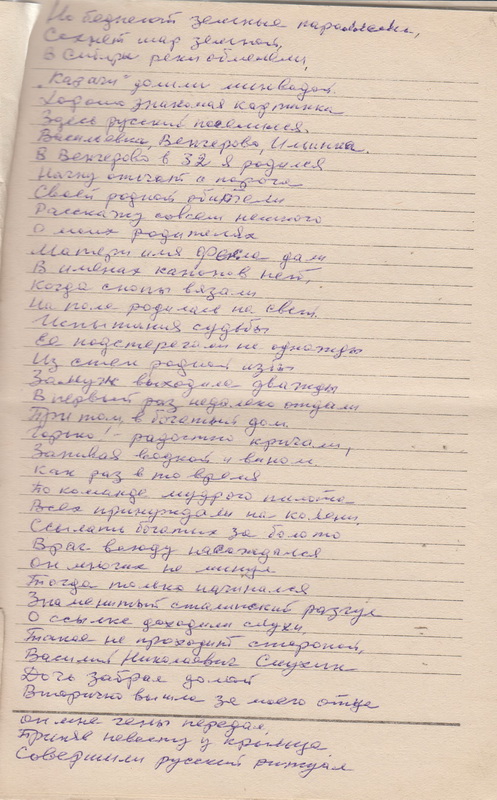 Но беднеют земные
Сохнет шар земной,
В Сибири реки обмелели,
"Казачи" долили минводой
Хорошо знакомая картинка
Здесь русский поселился.
Васильевка, Венчерово, Ильинка.
В Венчерово в 32 я родился
Начну отсчёт с порога
Своей родной обители
Расскажу совсем немного
О моих родителях
Матери имя Фёкла дали
В именах канонов нет,
Когда снопы вязали
На поле родилась на свет.
Испытания судьбы
Её подстерегали не однажды
Из стен родной избы
Замуж выходила дважды
В первый раз недалеко отдали
При том, в богатый дом.
Горько! - радостно кричали,
Запивая водкой и вином.
Как раз в то время
По команде мудрого пилота
Всех принуждали на колени,
Ссылали богатых за болото
Враг всюду насаждался
Он многих не минул
Тогда только начинался
Знаменитый сталинский разгул
О ссылке доходили слухи,
Такое не проходит стороной,
Василий Николаевич
Дочь забрал домой
Вторично вышла за моего отца
он мне гены передал,
Приняв невесту у крыльца
Совершили русский ритуал